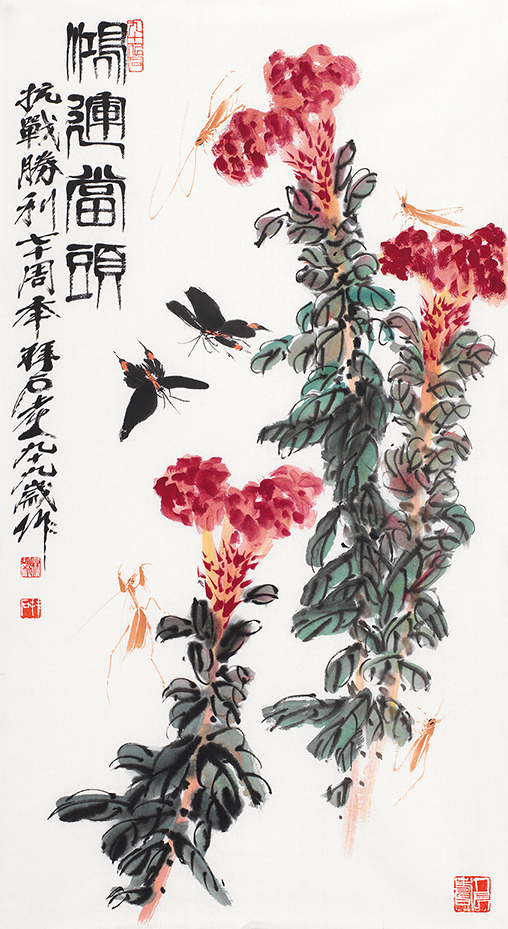 鴻運當頭
抗戰勝利七十周年拜石老人九十九歲作